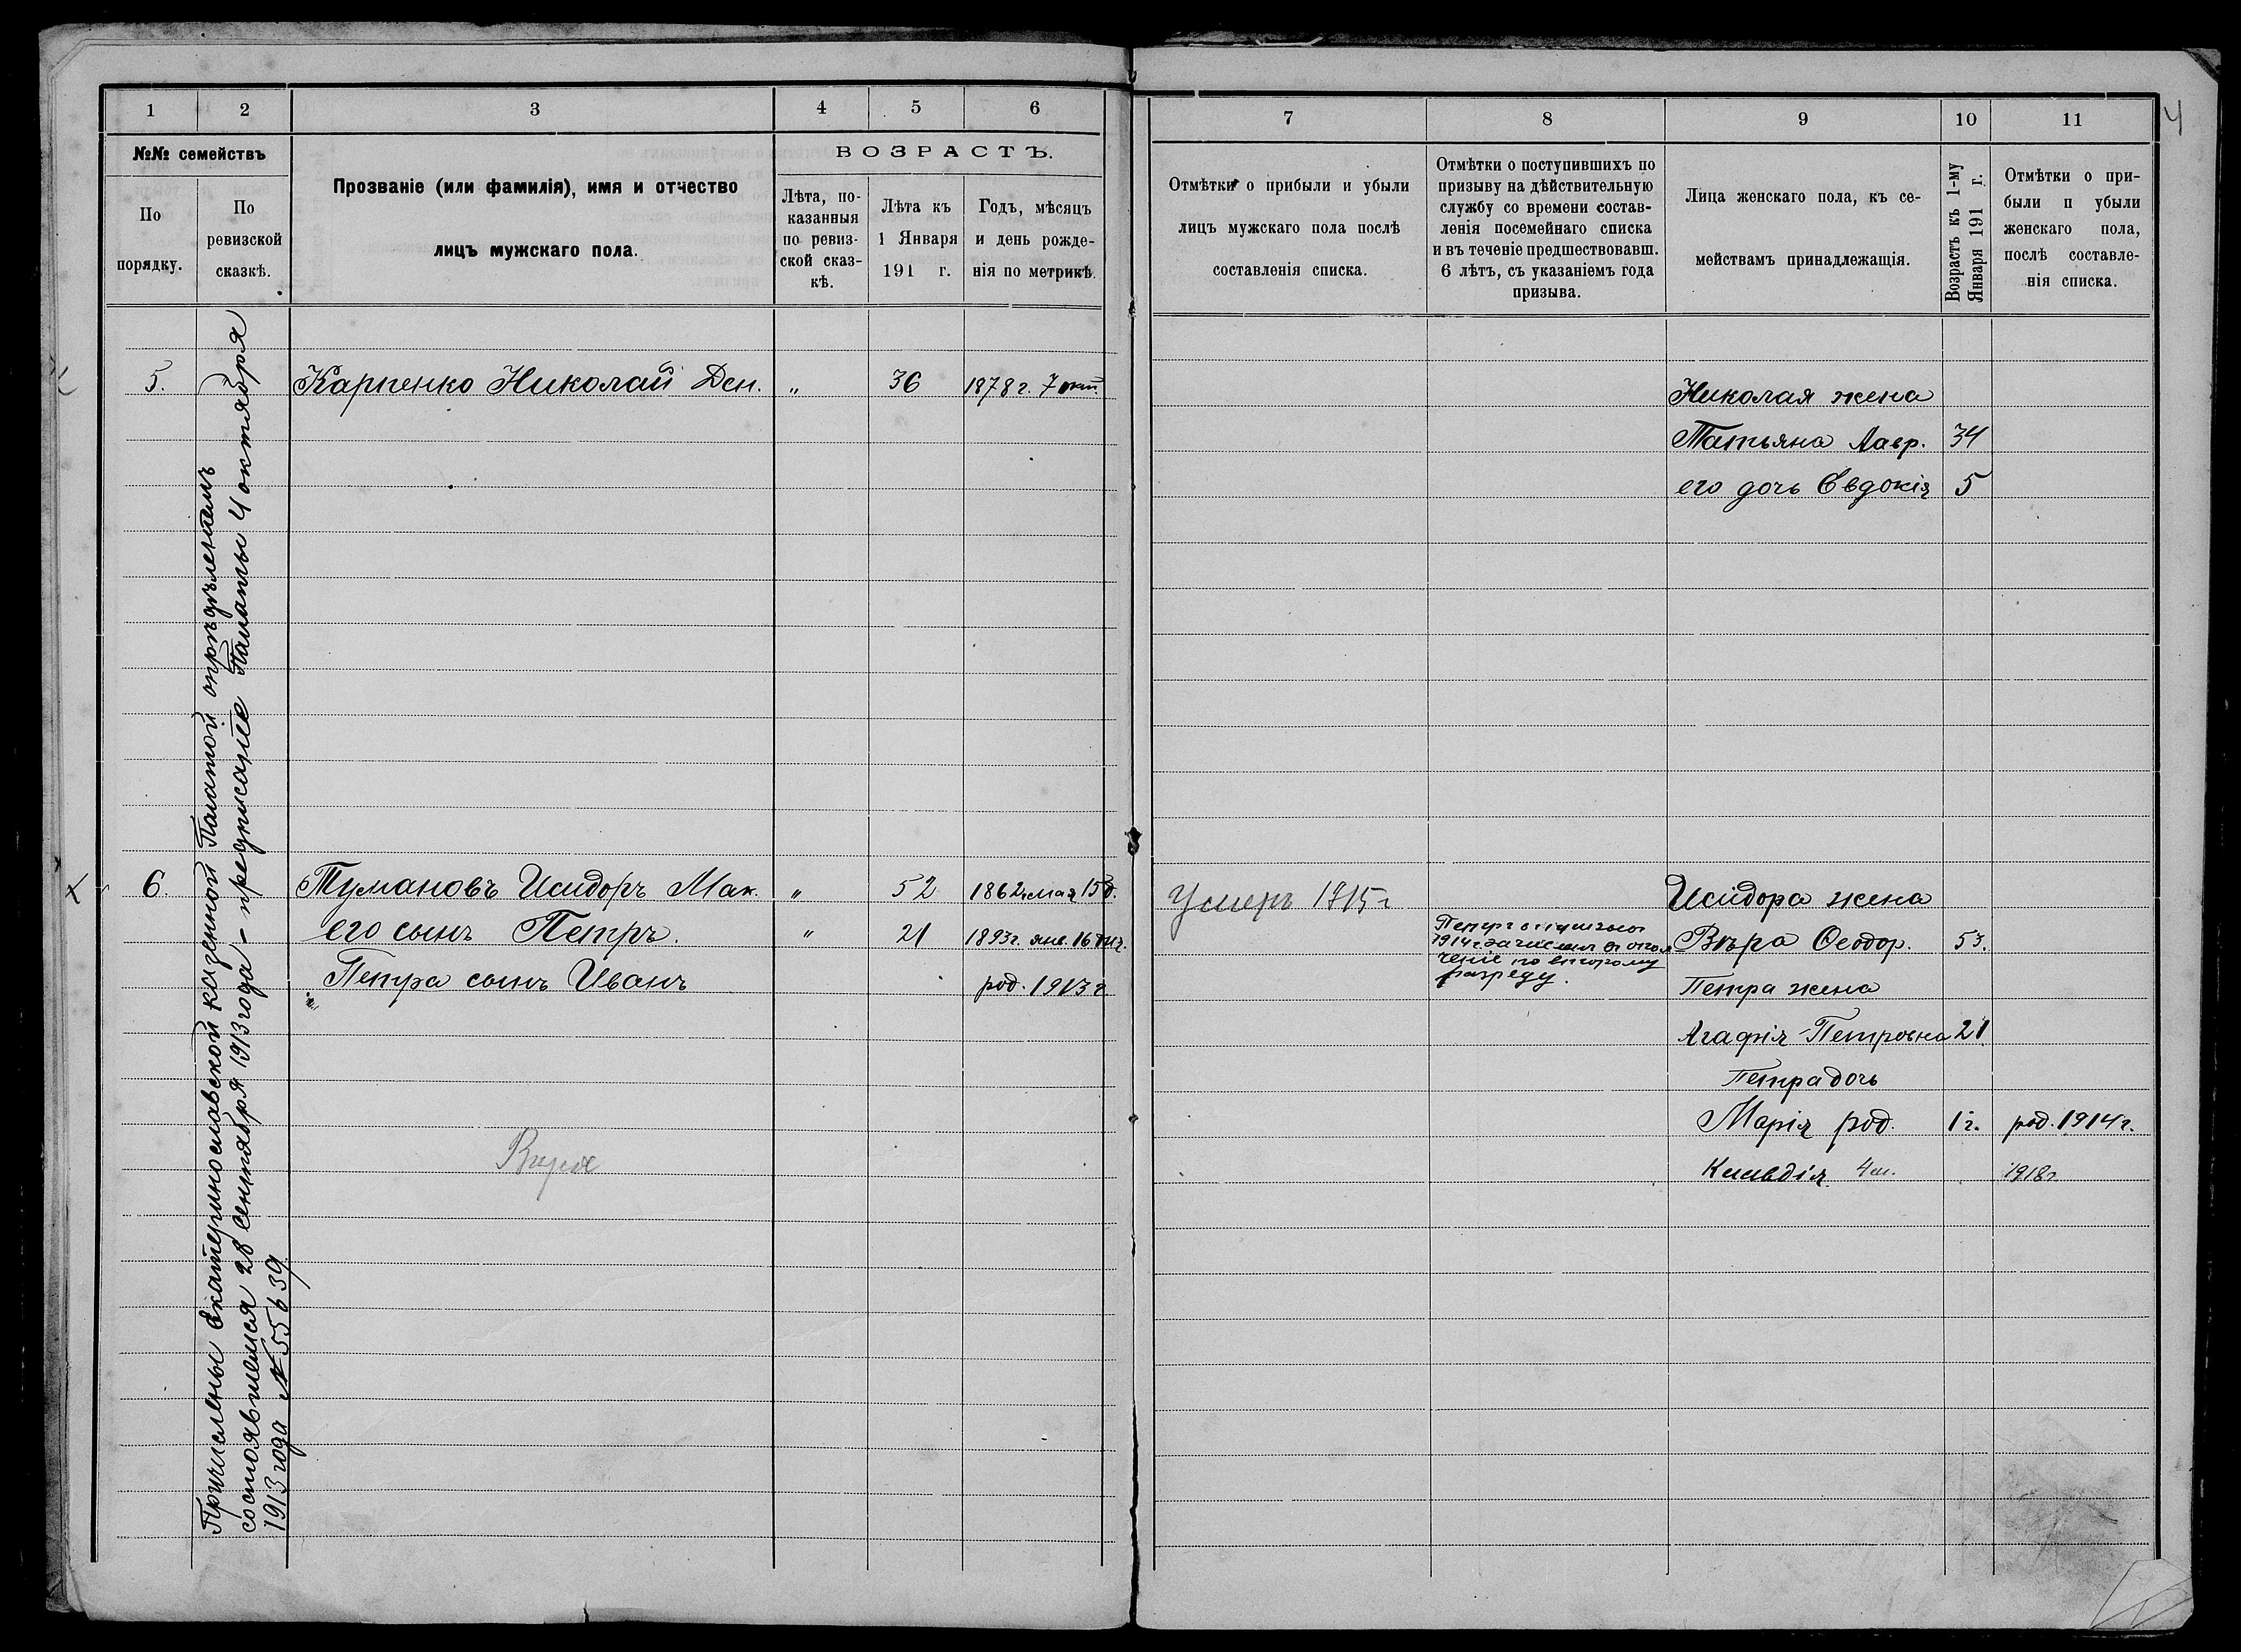 1 2 3 4 5 6
№№ семействъ
По порядку.
По ревизской сказкѣ.
Прозваніе (или фамилія), имя и отчество
лицъ мужскаго пола.
ВОЗРАСТЪ.
Лѣта, по-
казанныя
по ревиз-
ской сказ-
кѣ.
Лѣта къ
1 Января
191 г.
Годъ, мѣсяцъ
и день рожде-
нія по метрикѣ.
Причислены Екатеринославской казенной Палатой опредѣленіемъ
состоявшемся 28 сентября 1913 года - предписаніе Палаты 4 октября
1913 года № 55639
5. Карпенко Николай Ден. „ 36 1878 г. 7 окт.
6. Тумановъ Исидоръ Мак. „ 52 1862 мая 15 д.
его сынъ Петръ. „ 21 1893 г. янв. 16
Петра сынъ Иванъ род. 1913 г
7 8 9 10 11
4
Отмѣтки о прибыли и убыли
лицъ мужскаго пола послѣ
составленія списка.
Отмѣтки о поступившихъ по
призыву на дѣйствительную
службу со времени состав-
ленія посемейнаго списка
и въ теченіе предшествовавш.
6 лѣтъ, съ указаніемъ года
призыва.
Лица женскаго пола, къ се-
мействамъ принадлежащія.
Возрастъ къ 1-му
Января 191 г.
Отмѣтки о при-
были п убыли
женскаго пола,
послѣ составле-
нія списка.
Николая жена
Татьяна Лавр. 34
его дочь Евдокія 5
Умеръ 1915 г
Исидора жена
Петръ
1914 г. зачислен в опол
ченіе по второму
разряду.
Вѣра Ѳеодор. 53.
Петра жена
Агафія Петровна 21
Петра дочь
Марія род. 1 г. род. 1914 г.
Клавдія 4 м. 1918 г